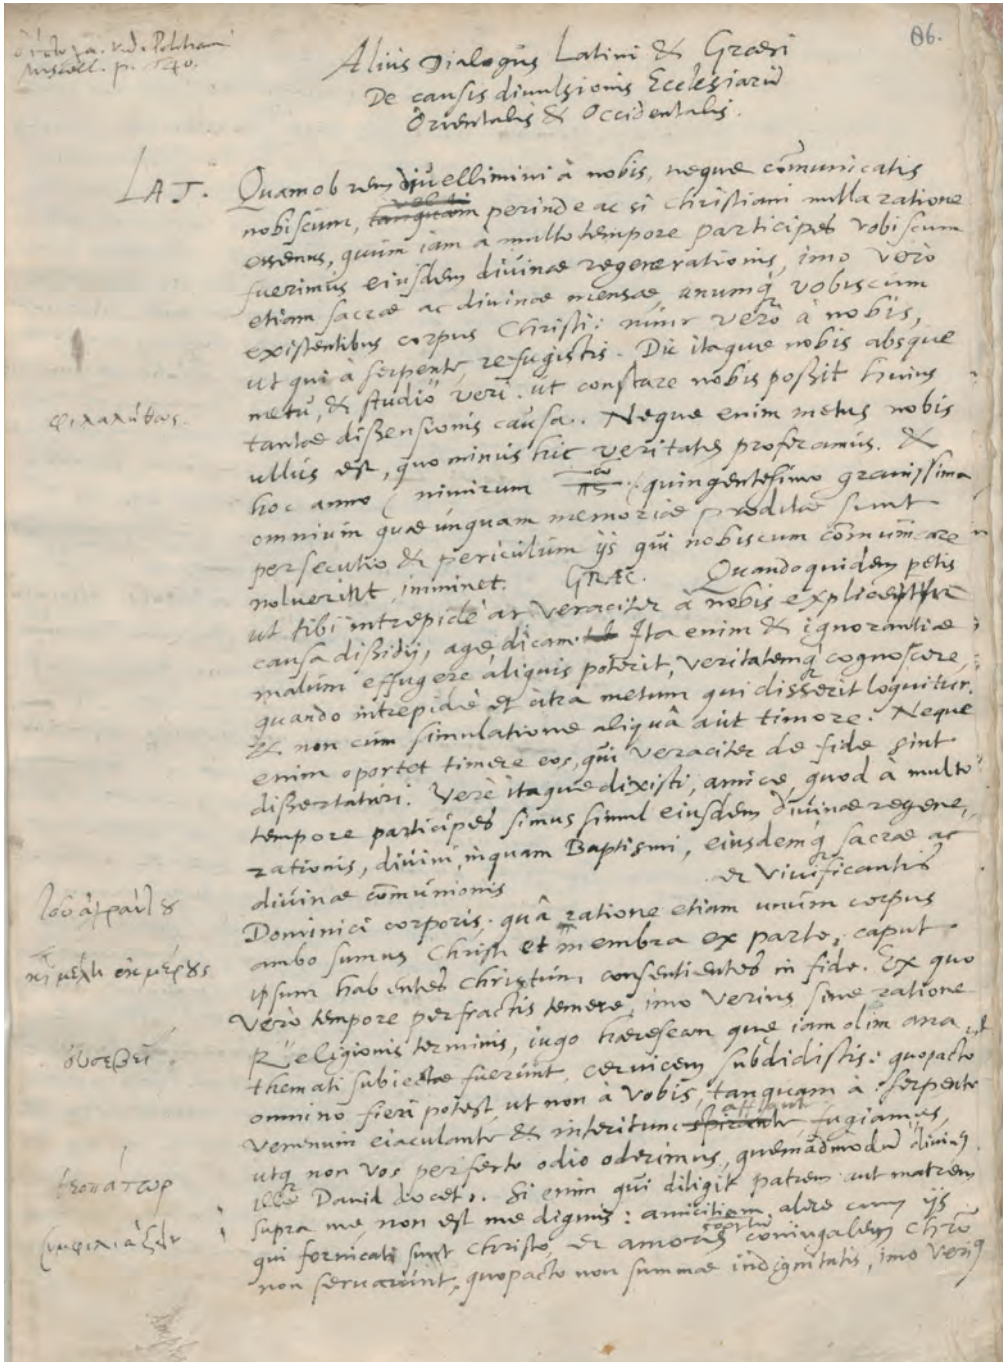 86.
Miscell. p. 540.
Alius Dialogus Latini & Græci
De causis divulsionis Ecclesiarū
Orientalis & Occidentalis.
LAT. Quamobrem divellimini à nobis, neque cōmunicatis
nobiscum, tanquam perinde ac si Christiani nulla ratione
essemus, quum iam à multo tempore participes vobiscum
fuerimus eiusdem divinæ regenerationis, imo verò
etiam sacræ ac divinæ mensæ, unumq; vobiscum
existentibus corpus Christi: nunc verò à nobis,
ut qui à serpente, refugistis. Dic itaque nobis absque
metu, & studio veri. ut constare nobis possit huius
φιλαλήθως.
tantæ dissensionis causa. Neque enim metus nobis
ullus est, quo minus hic veritatem proferamus. &
hoc anno (nimirum quingentesimo gravissima
omnium quæ unquam memoriæ proditæ sunt
persecutio & periculum ijs qui nobiscum cōmunicare
noluerint, imminet. GRÆC. Quandoquidem petis
ut tibi intrepidè ac veraciter à nobis explicetur
causa dissidij, age, dicam. Ita enim & ignorantiæ
malum effugere aliquis poterit, veritatemq; cognoscere,
quando intrepidè et citra metum qui disserit loquitur.
& non cum simulatione aliquâ aut timore. Neque
enim oportet timere eos, qui veraciter de fide sint
dissertaturi. Verè itaque dixisti, amice, quod à multo
tempore participes simus simul eiusdem divinæ regene,
rationis, divini, inquam Baptismi, eiusdemq; sacræ ac
divinæ cōmunionis et vivificantis
τοῦ ἀχράντου
Dominici corporis. quâ ratione etiam unum corpus
ambo sumus Christi et membra ex parte, caput
κỳ μέλη ἐκ μέρους
ipsum habentes Christum, consentientes in fide. Ex quo
verò tempore perfractis temere, imo verius sine ratione
Religionis terminis, iugo hæresean quæ iam olim ana
δυσσεβεῖ.
themati subiectæ fuerunt, cervicem subdidistis: quopacto
omnino fieri potest, ut non à vobis, tanquam à serpente
venenum eiaculante & interitum spirante afflante fugiamus,
utq; non vos perfecto odio oderimus, quemadmodū divin9
θεοπάτωρ
ille David docet. Si enim qui diligit patrem aut matrem
supra me, non est me dignus: amicitiam alere cum ijs
qui fornicati sunt Christo, et amoris coniugalem Chrō
non servarunt, quopacto non summæ indignitatis, imo veri9